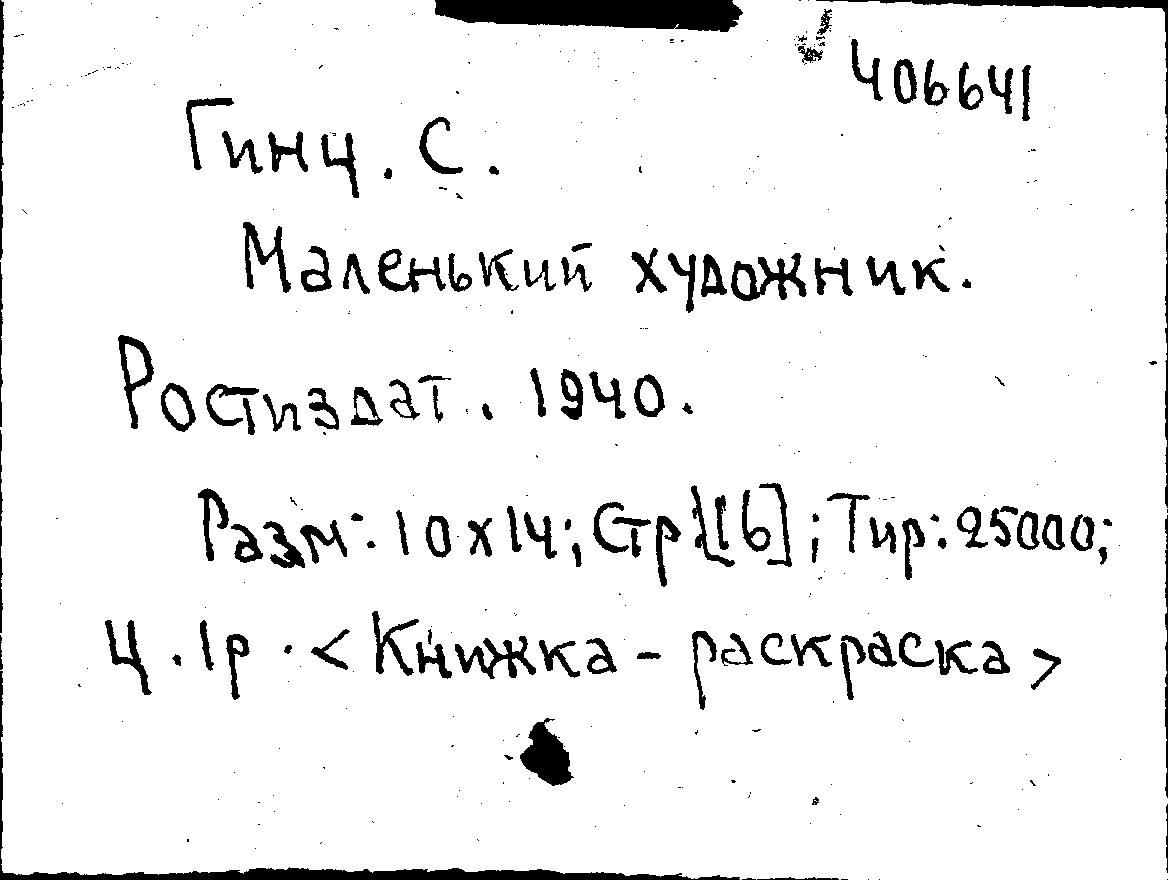 406641
Гинц. С.
Маленький художник.
Ростиздат. 1940.
Разм: 10х14; Стр: [16]; Тир: 25000;
Ц. 1р. <Книжка-раскраска>